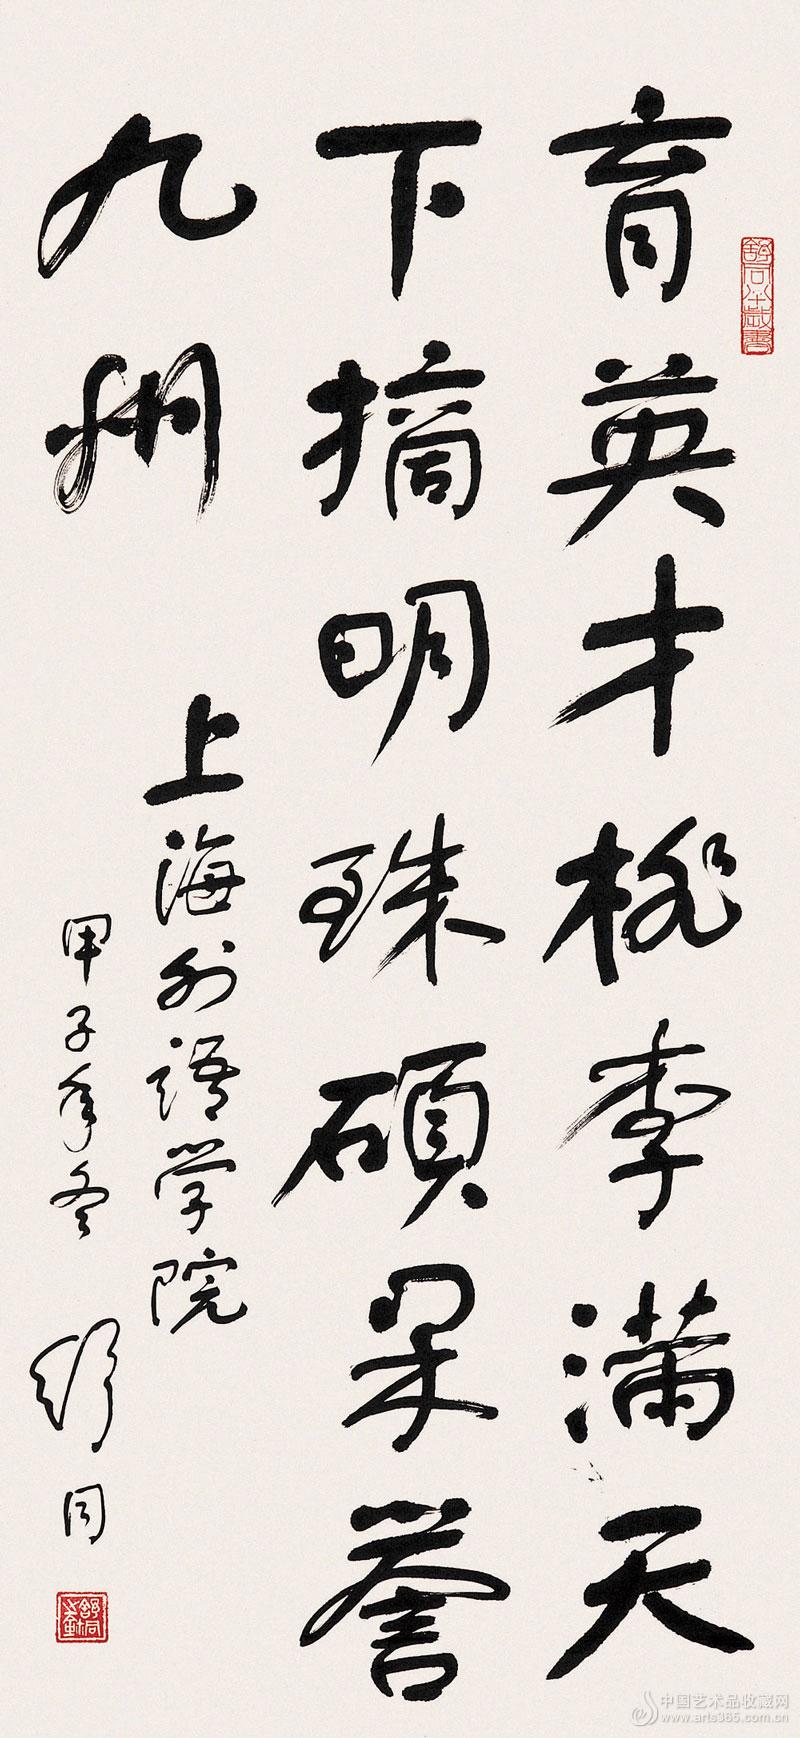 育英才桃李满天
下摘明珠硕果誉
九州
上海外语学院
甲子年冬 舒同
中国艺术品收藏网
www.arts365.com.cn